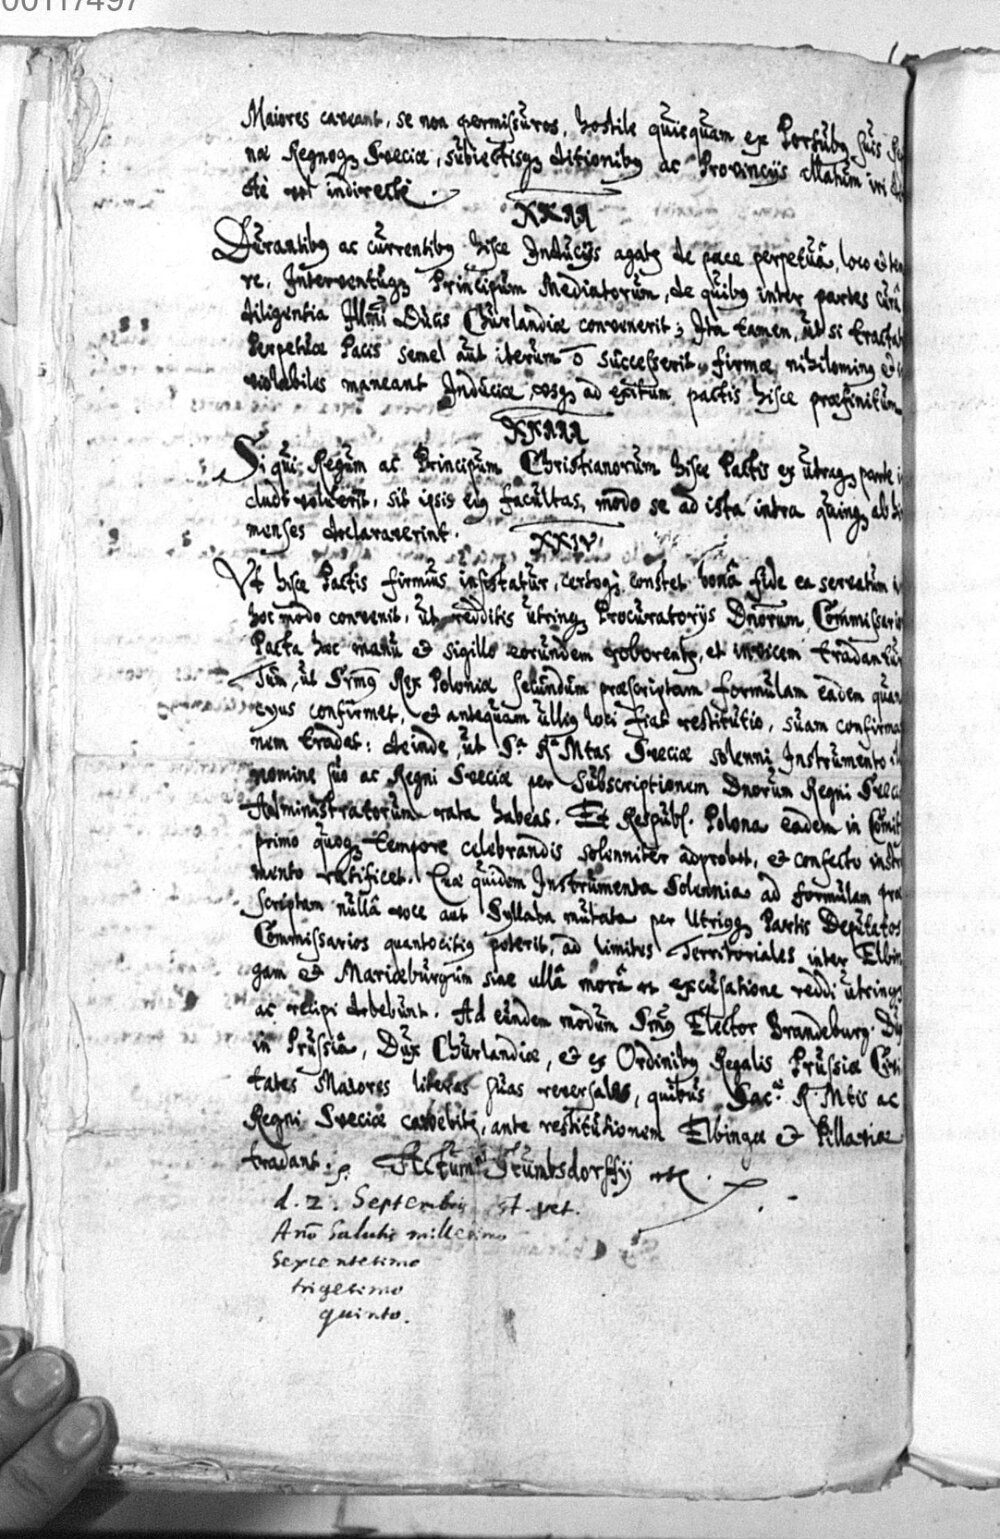 00117497
Maiores caveant, se non permissuros, hostile quicquam ex Portubq suis
næ Regnoqz Sveciæ, subiectisqz ditionibq ac Provincijs illatum iri
cté vel indirectè.
XXII
Durantibq ac currentibq hisce Inducijs agatr de pace perpetuâ, loco et
re, Interventuqz Principum Mediatorum, de quibq inter partes curâ
diligentia Illmi Ducis Churlandiæ convenerit; Ita tamen, ut si tractat
Perpetuæ Pacis semel aut iterum ō successerit, firmæ nihilominq et
violabiles maneant Induciæ, vsqz ad exitum pactis hisce præfinitum
XXIII
Si qui Regum ac Principum Christianorum hisce Pactis ex utraqz parte
cludi voluerit, sit ipsis eiq facultas, modo se ad ista intra quinqz ab
menses declaraverint.
XXIV
Vt hisce Pactis firmius insistatur, certoqz constet bonâ fide ea servatum
hoc modo convenit, ut redditis utrinqz Procuratorijs Dnorum Commissario
Pacta hæc manu et sigillo eorundem roborentr, et invicem tradantur
Tum, ut Srmq Rex Poloniæ secundum præscriptam formulam eadem quan
cyus confirmet, et antequam ulliq loci fiat restitutio, suam confirma
nem tradat: deinde, ut Sa Ra Mtas Sveciæ solenni Instrumento
nomine suo ac Regni Sveciæ per subscriptionem Dnorum Regni Sveciæ
Administratorum rata habeat. Et Respubl. Polona eadem in Comit
primo quoqz tempore celebrandis solenniter adprobet, et confecto instru
mento ratificet. Quæ quidem Instrumenta Solennia ad formulam præ
scriptam nullâ voce aut Syllaba mutata per Utriqqz Partis Deputatos
Commissarios quantocitiq poterit, ad limites Territoriales inter Elbin
gam et Mariæburgum sine ullâ morâ et excusatione reddi utrinqz
ac recipi debebunt. Ad eundem modum Srmq Elector Brandeburg. Dux
in Prussiâ, Dux Churlandiæ, et ex Ordinibq Regalis Prussiæ Civi
tates Maiores literas suas reversales, quibus Sac.æ R. Mtis ac
Regni Sveciæ cavebitr, ante restitutionem Elbingæ et Pillaviæ
tradant. Actum Stumbsdorffij
d. 2. Septembris st. vet.
Anō Salutis millesimo
Sexcentesimo
trigesimo
quinto.